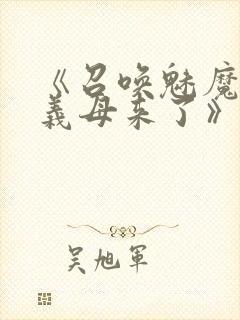 《召唤魅魔
义母来了》
吴旭军